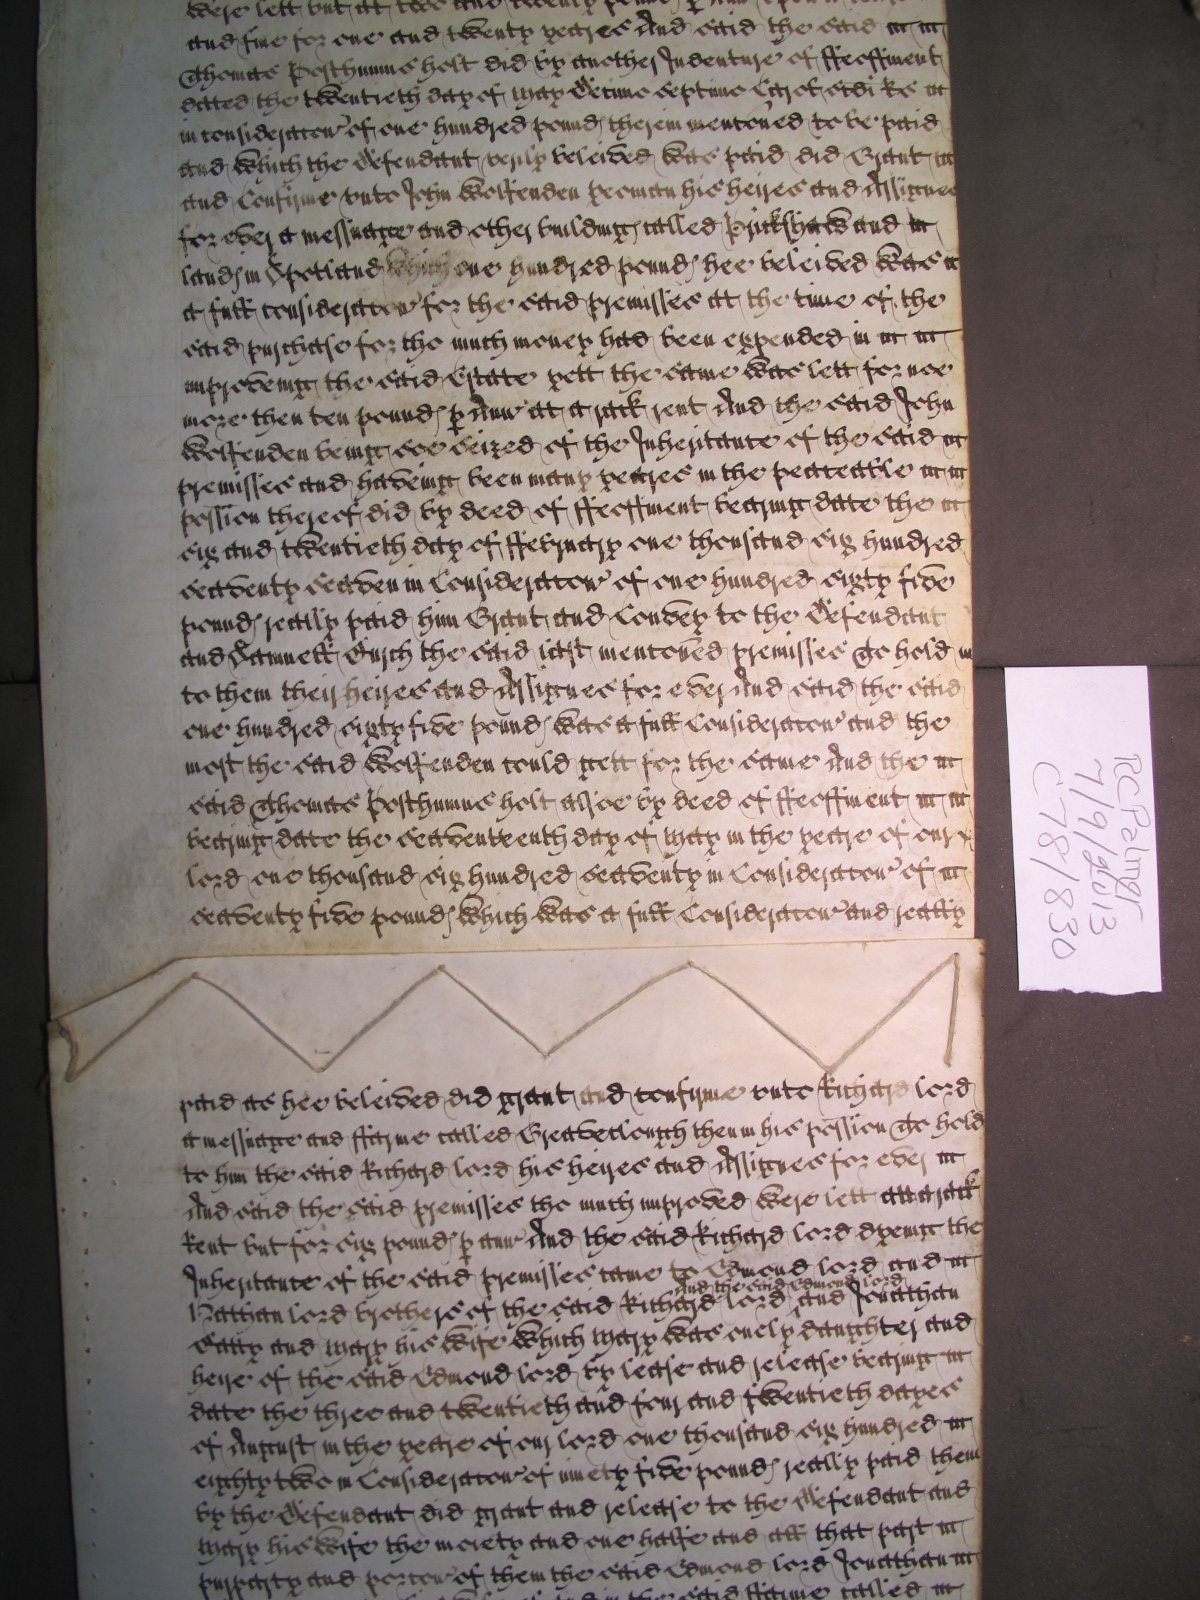 were lett but at two and twenty pound p Ann
and fine for one and twenty yeares And said the said
Thomas Posthumus holt did by another Indenture of ffeoffment
dated the twentieth day of May Decimo septimo
in consideracon of one hundred pound therein menconed to be paid
and which the Defendant verily beleived was paid did Grant
and Confirme unto John Wolfenden yeoman his heires and Assignes
for ever a messuage and other building called Prickshaw and
land in Spotland which one hundred pound hee beleived was
a full consideracon for the said premisses at the time of the
said purchase for tho much money had been expended in
improveing the said Estate yett the same was lett for noe
more then ten pound p Ann at a rack rent And the said John
Wolfenden being soe seized of the Inheritance of the said
premisses and haveing been many yeares in the peaceable
possion thereof did by deed of ffeoffment bearing date the
six and twentieth day of ffebruary one thousand six hundred
seaventy seaven in Consideracon of one hundred sixty five
pound really paid him Grant and Convey to the Defendant
and Samuell the said last menconed premisses To hold
to them their heires and Assignes for ever And said the said
one hundred sixty five pound was a full Consideracon and the
most the said Wolfenden could gett for the same And the
said Thomas Posthumus holt alsoe by deed of ffeoffment
bearing date the seaventeenth day of May in the yeare of our
lord one thousand six hundred seaventy in Consideracon of
seaventy five pound which was a full Consideracon and really
paid as hee beleived did grant and confirme unto Richard lord
a messuage and ffarme called Greaveclough then in his possion To hold
to him the said Richard lord his heires and Assignes for ever
And said the said premisses tho much improved were lett att a rack
Rent but for six pound p ann And the said Richard lord dyeing the
Inheritance of the said premisses came to Edmond lord and
And the said Edmond lord
lord brothers of the said Richard lord and Jonathan
and Mary his wife which Mary was onely daughter and
heire of the said Edmond lord by lease and release bearing
date the three and twentieth and four and twentieth dayes
of August in the yeare of our lord one thousand six hundred
eighty two in Consideracon of ninety five pound really paid them
by the Defendant did grant and release to the Defendant and
Mary his wife the moiety and one halfe and all that part
purparty and porcon of them the said Edmond lord Jonathan
and in the said ffarme called
RC Palmer
7/9/2013
C78/830